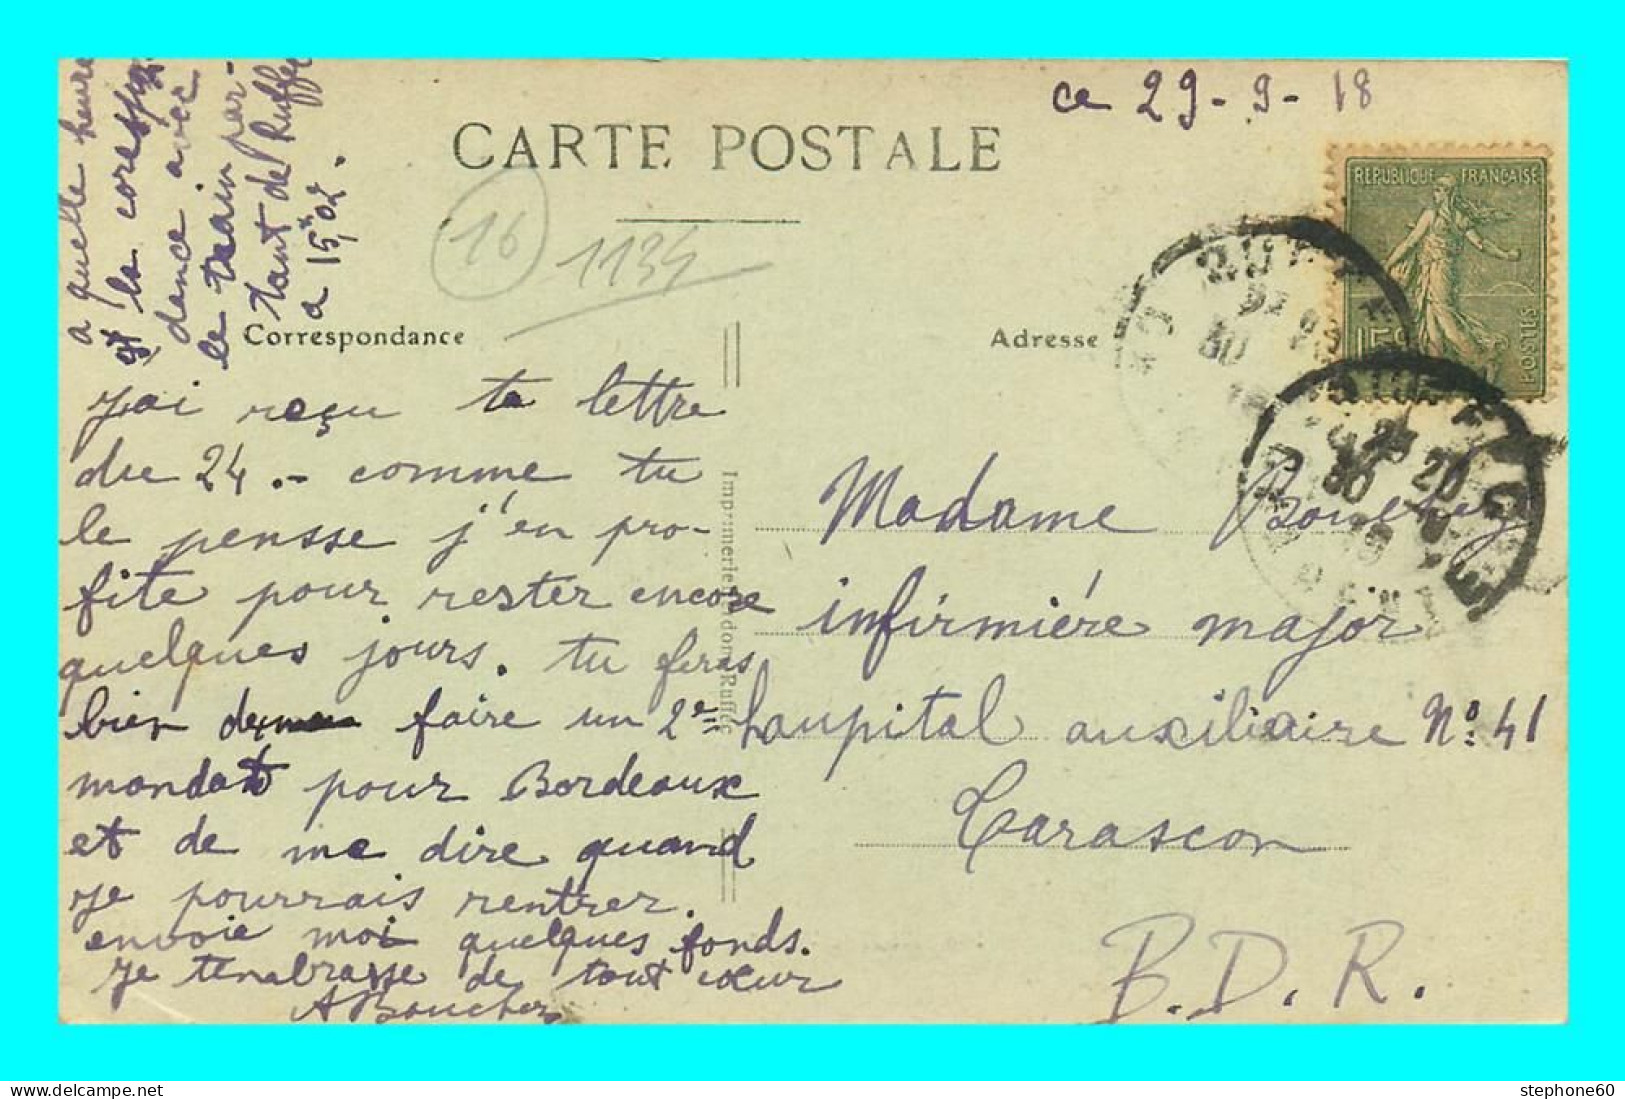 ce 29-9-18
CARTE POSTALE
a quelle heure
est la corespon
dance avec
le train par-
tant de Ruffec
a 15h 02.
16
1134
Correspondance
Adresse
REPUBLIQUE FRANÇAISE
15c
POSTES
RUFFEC
jai reçu ta lettre
du 24.- comme tu
le pensse j'en pro-
fite pour rester encore
quelques jours. tu feras
bien de faire un 2e
mandat pour Bordeaux
et de me dire quand
je pourrais rentrer.
envoie moi quelques fonds.
je tenabrasse de tout cœur
A Boucher
Imprimerie Ruffec
Madame Boucher
infirmiére major
haupital auxiliaire No. 41
Tarascon
B.D.R.
stephone60